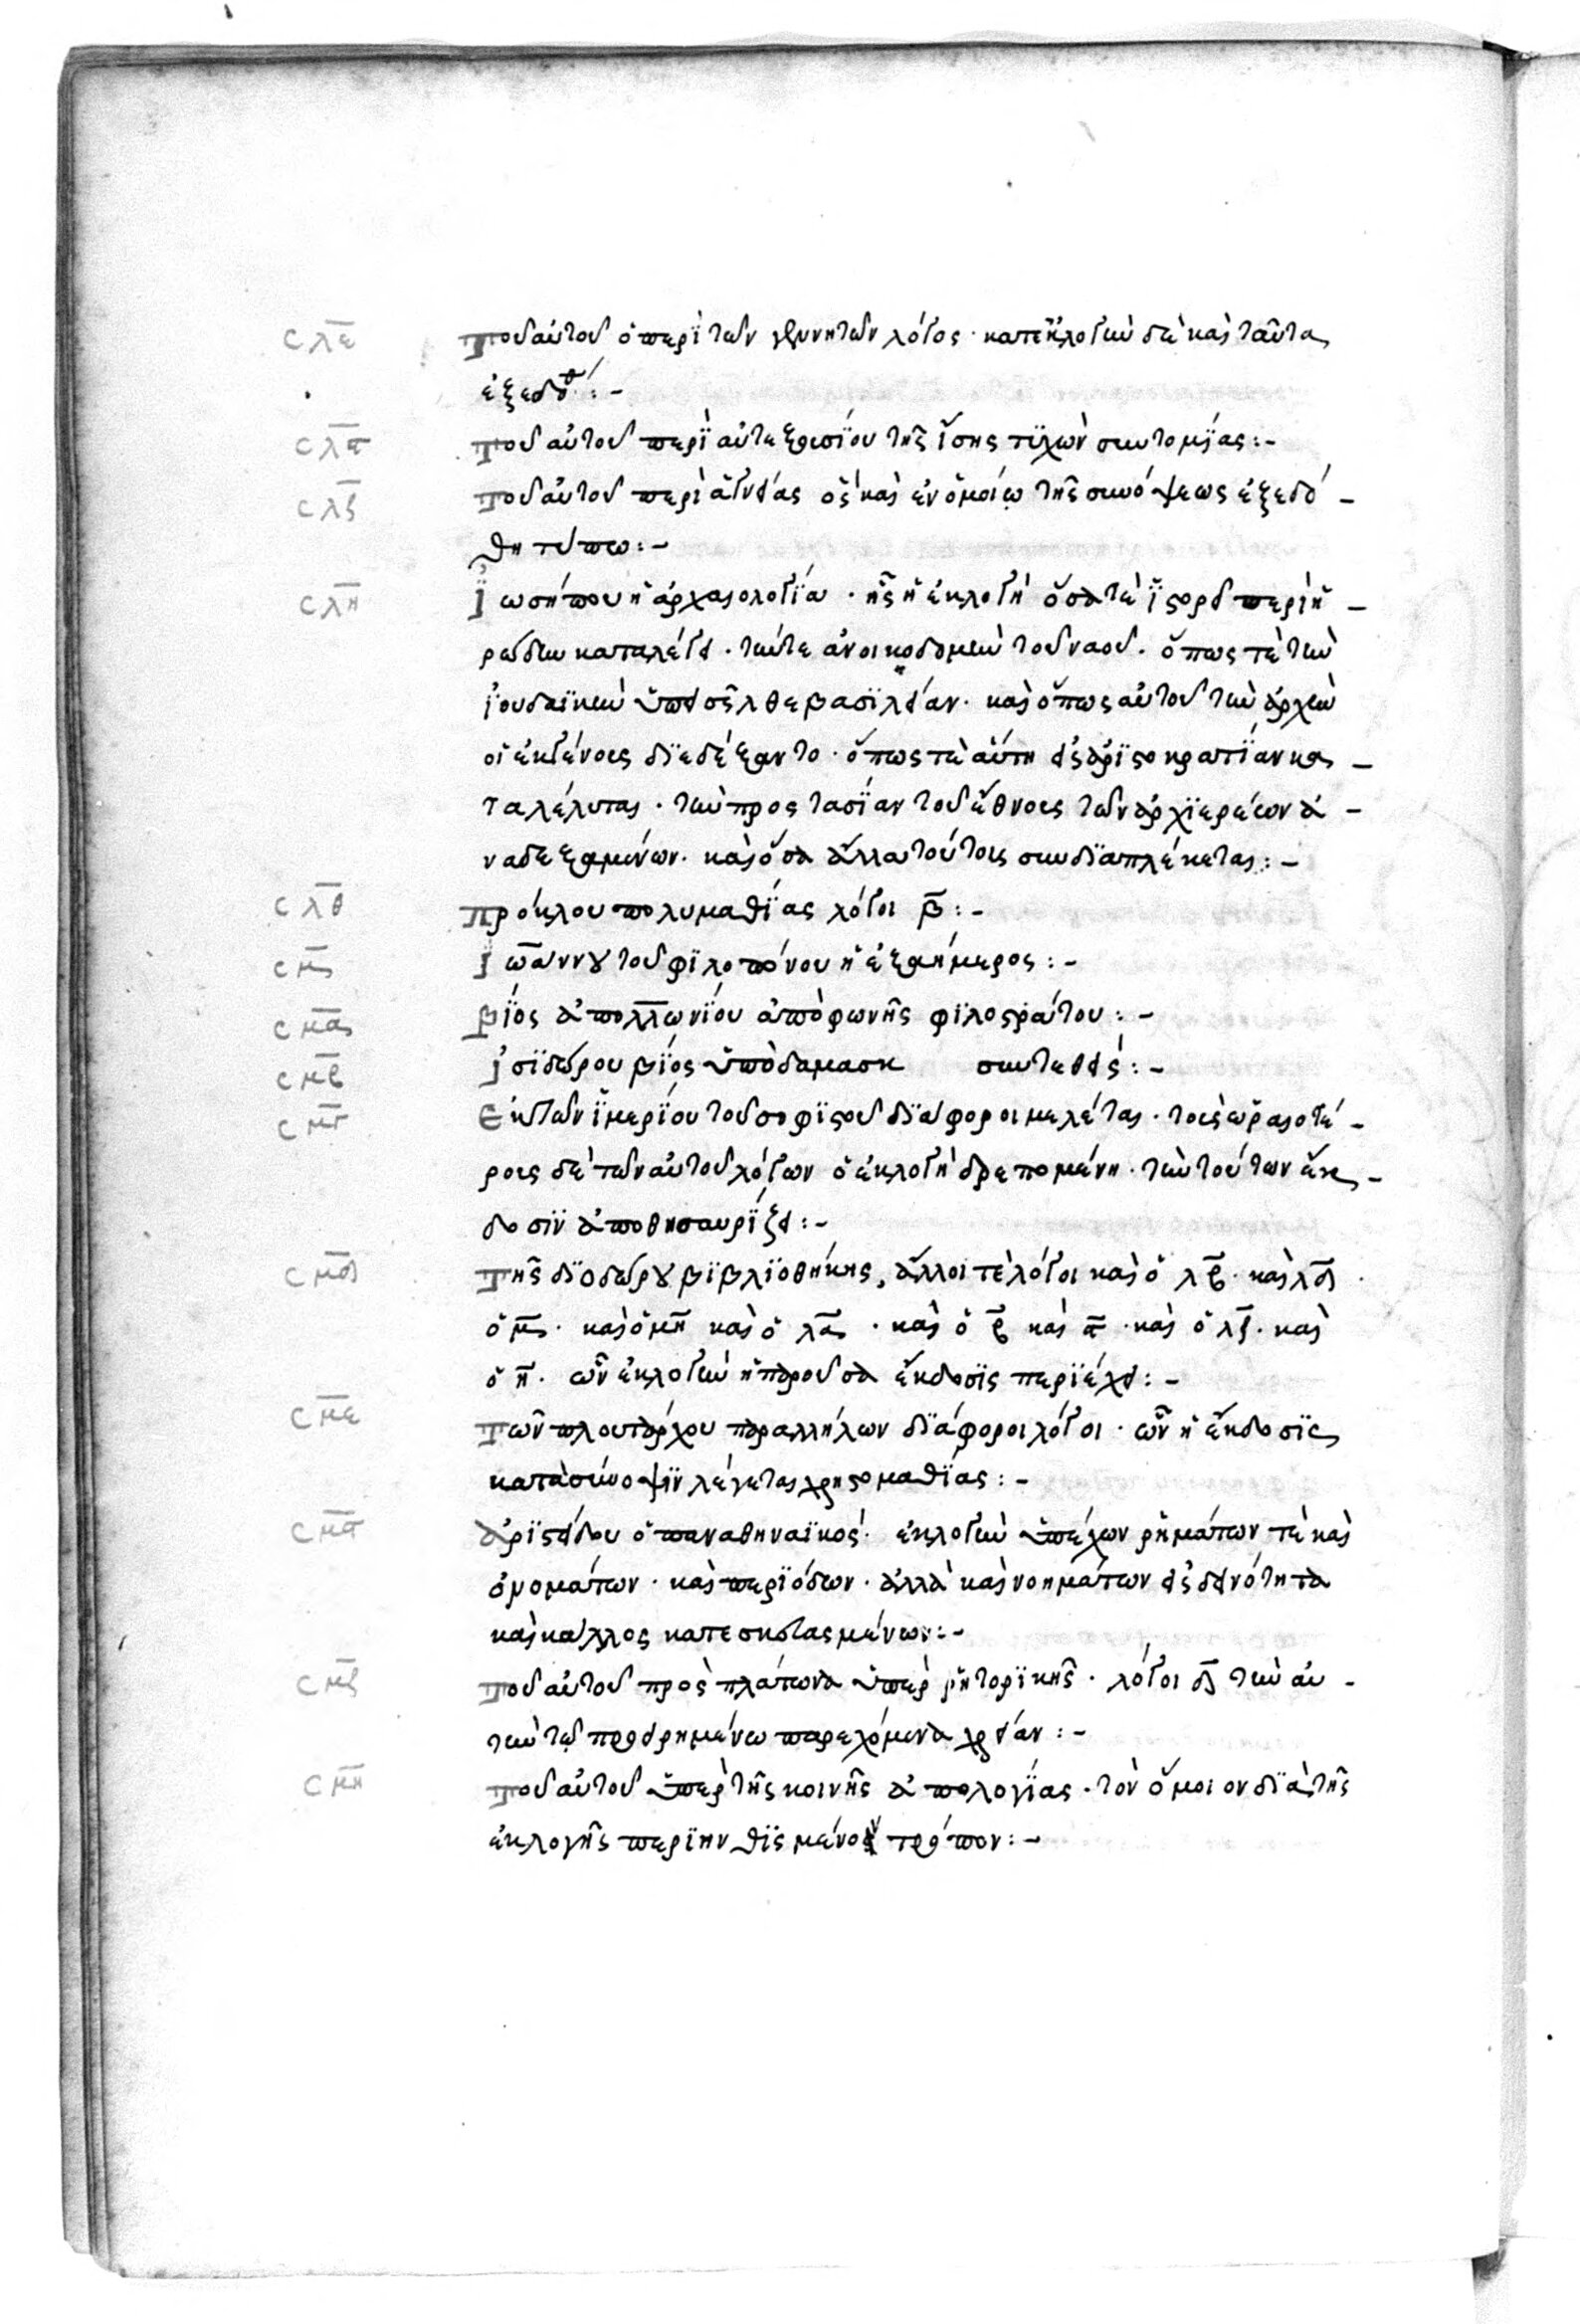 σλε τοῦ αὐτοῦ ὁ περὶ τῶν γενητῶν λόγος · κατ' ἐκλογὴν δὲ καὶ ταῦτα
ἐξεδόθ :-
σλϛ τοῦ αὐτοῦ περὶ αὐτεξουσίου τῆς ἴσης τυχὼν συντομίας :-
σλζ τοῦ αὐτοῦ περὶ ἁγνείας ὃς καὶ ἐν ὁμοίω τῆς συνόψεως ἐξεδό-
θη τύπω :-
σλη Ἰωσήπου ἡ ἀρχαιολογία · ἧς ἡ ἐκλογὴ ὅσα τὲ ἱστορεῖ περὶ ἡ-
ρώδην καταλέγει · τήν τε ἀνοικοδομὴν τοῦ ναοῦ · ὅπως τὲ τὴν
ἰουδαϊκὴν ὑπεισῆλθε βασιλείαν · καὶ ὅπως αὐτοῦ τὴν ἀρχὴν
οἱ ἐκγένους διεδέξαντο · ὅπως τὲ αὕτη εἰς ἀριστοκρατίαν κα-
ταλέλυται · τὴν προστασίαν τοῦ ἔθνους τῶν ἀρχιερέων ἀ-
ναδεξαμένων · καὶ ὅσα ἄλλα τούτοις συνδιαπλέκεται :-
σλθ πρόκλου πολυμαθίας λόγοι β :-
σμ Ἰωάννου τοῦ φιλοπόνου ἡ ἑξαήμερος :-
σμα βίος ἀπολλωνίου ἀπὸ φωνῆς φιλοστράτου :-
σμβ Ἰσιδώρου βίος ὑπὸ δαμασκ συντεθείς :-
σμγ Ἐκ τῶν ἱμερίου τοῦ σοφιστοῦ διάφοροι μελέται · τοὺς ὡραιοτέ-
ρους δὲ τῶν αὐτοῦ λόγων ὁ ἐκλογὴ δρεπομένη · τὴν τούτων ἔκ-
δοσιν ἀποθησαυρίζει :-
σμδ τῆς διοδώρου βιβλιοθήκης, ἄλλοι τὲ λόγοι καὶ ὁ λβ · καὶ λδ
ὁ μ · καὶ ὁ μη καὶ ὁ λα · καὶ ὁ β καὶ ϛ · καὶ ὁ λζ · καὶ
ὁ η · ὧν ἐκλογὴν ἡ παροῦσα ἔκδοσις περιέχει :-
σμε τῶν πλουτάρχου παραλλήλων διάφοροι λόγοι · ὧν ἡ ἔκδοσις
κατὰ σύνοψιν λέγεται χρηστομαθίας :-
σμϛ ἀριστείδου ὁ παναθηναϊκός · ἐκλογὴν ὑπέχων ῥημάτων τὲ καὶ
ὀνομάτων · καὶ περιόδων · ἀλλὰ καὶ νοημάτων εἰς δεινότητα
καὶ κάλλος κατεσκευασμένων :-
σμζ τοῦ αὐτοῦ πρὸς πλάτωνα ὑπὲρ ῥητορικῆς · λόγοι δ τὴν αὐ-
τὴν τῷ προειρημένω παρεχόμενα χρείαν :-
σμη τοῦ αὐτοῦ ὑπὲρ τῆς κοινῆς ἀπολογίας · τὸν ὅμοιον διὰ τῆς
ἐκλογῆς περιηνθισμένον τρόπον :-